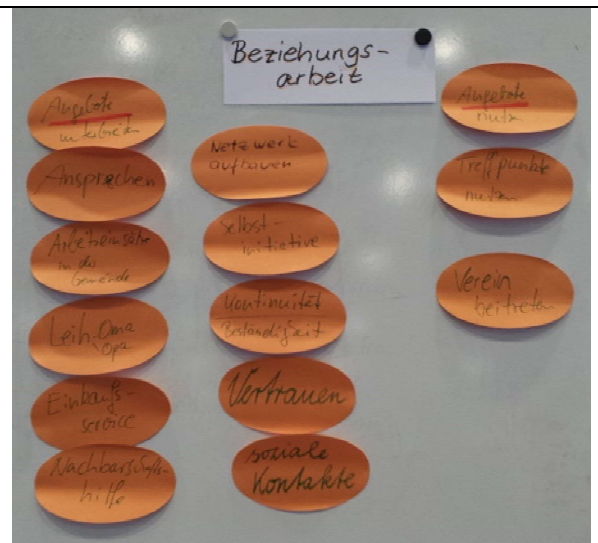 Beziehungs-
arbeit
Angebote
unterbreiten
Ansprechen
Arbeitseinsätze
in der
Gemeinde
Leih-Oma
Opa
Einkaufs-
service
Nachbarschafts-
hilfe
Netzwerk
aufbauen
Selbst-
initiative
Kontinuität
Beständigkeit
Vertrauen
soziale
Kontakte
Angebote
nutzen
Treffpunkte
nutzen
Verein
beitreten